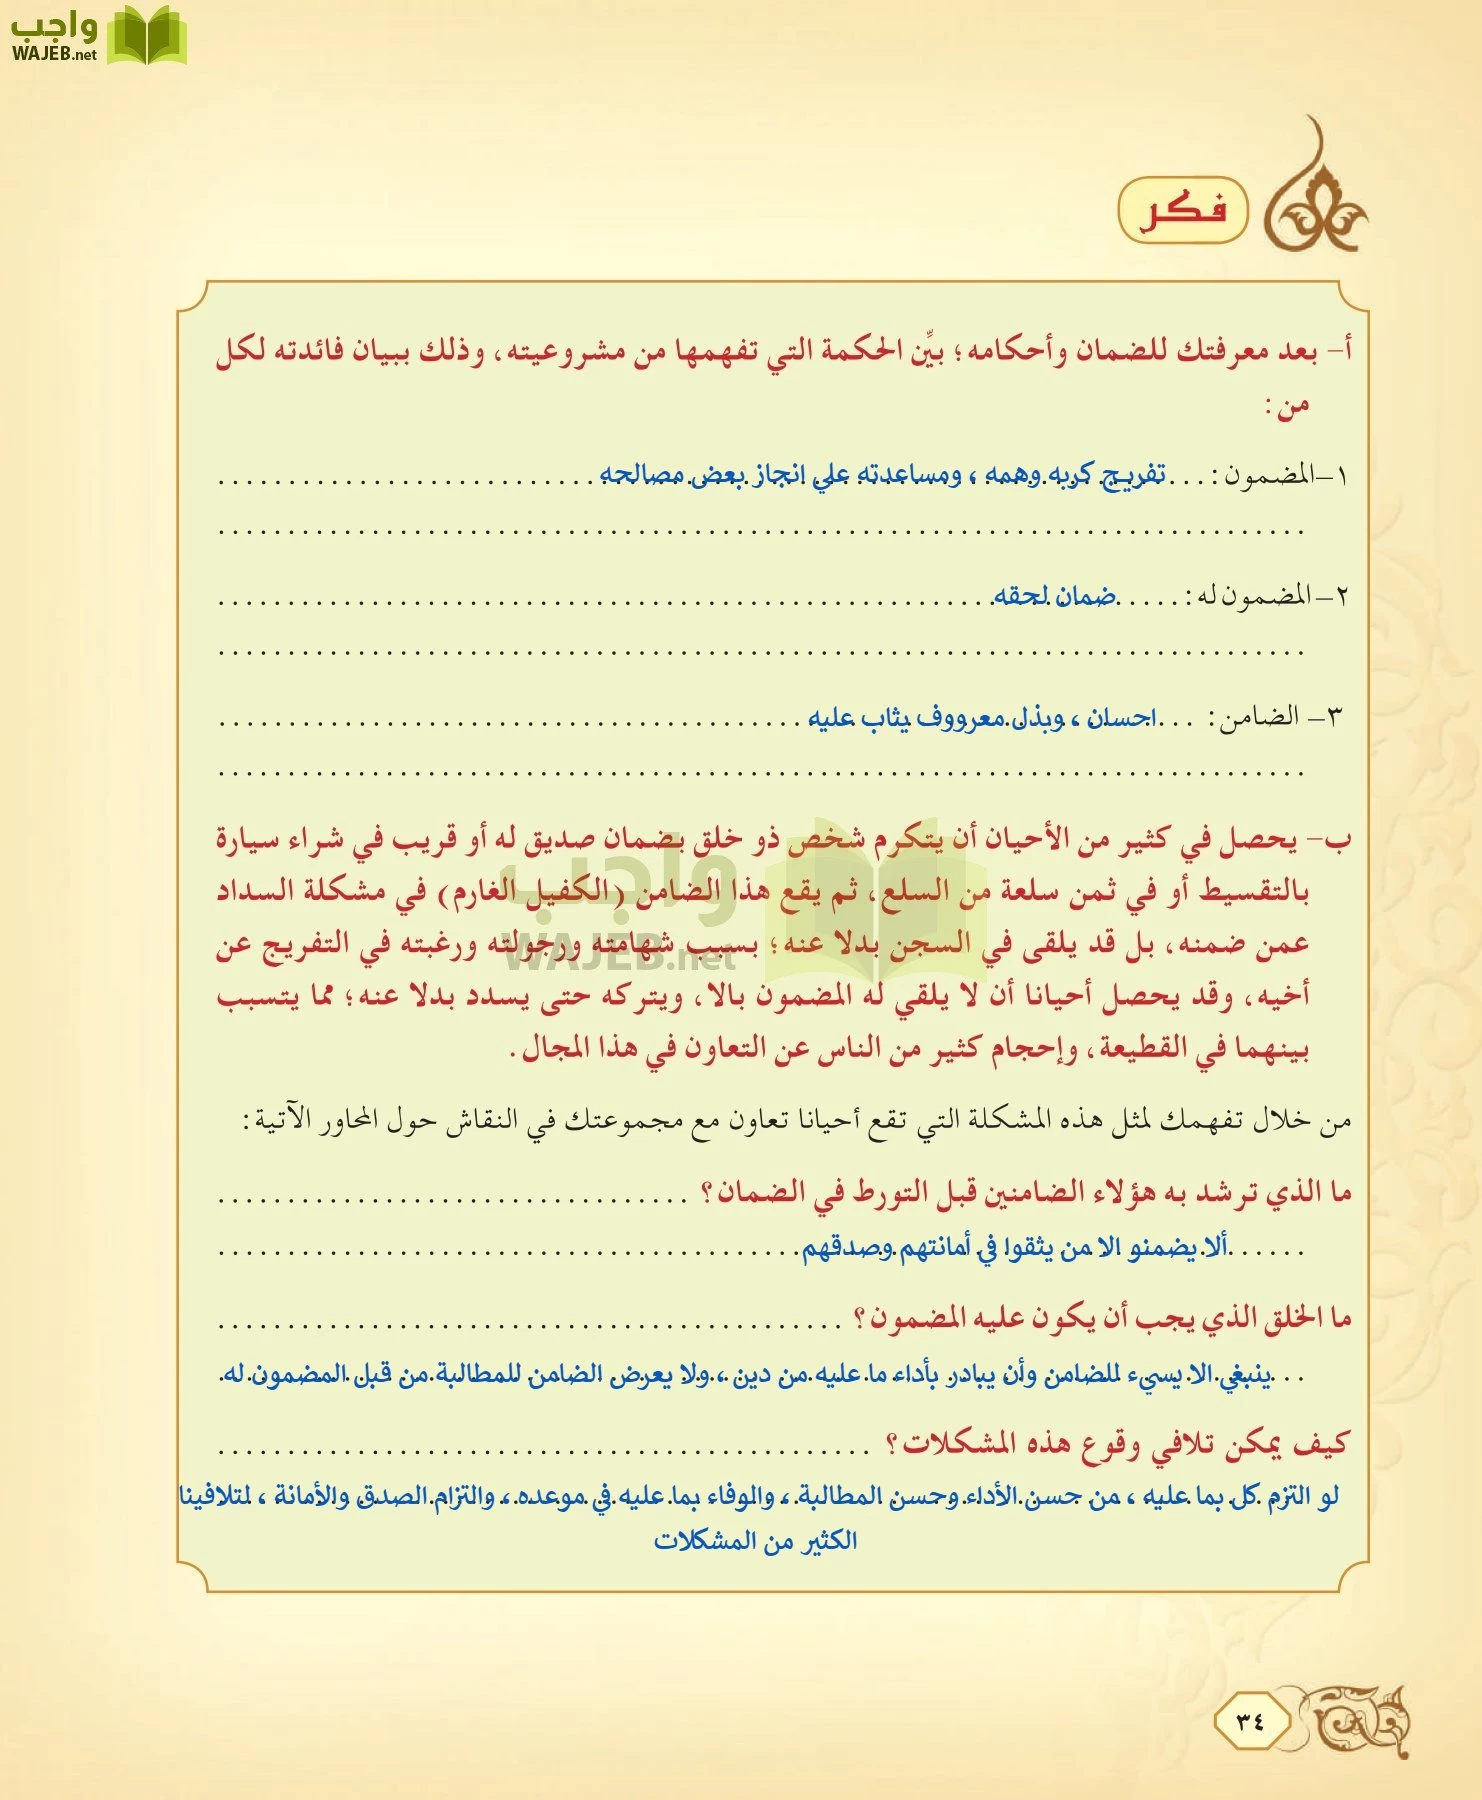 واجب
WAJEB.net
فكر
أ– بعد معرفتك للضمان وأحكامه؛ بيِّن الحكمة التي تفهمها من مشروعيته، وذلك ببيان فائدته لكل
من:
١–المضمون: ... تفريج كربه وهمه ، ومساعدته علي انجاز بعض مصالحه ...........................
..............................................................................
٢–المضمون له: ..... ضمان لحقه ........................................................
..............................................................................
٣– الضامن: ... احسان ، وبذل معرووف يثاب عليه ..........................................
..............................................................................
ب– يحصل في كثير من الأحيان أن يتكرم شخص ذو خلق بضمان صديق له أو قريب في شراء سيارة
بالتقسيط أو في ثمن سلعة من السلع، ثم يقع هذا الضامن (الكفيل الغارم) في مشكلة السداد
عمن ضمنه، بل قد يلقى في السجن بدلا عنه؛ بسبب شهامته ورجولته ورغبته في التفريج عن
أخيه، وقد يحصل أحيانا أن لا يلقي له المضمون بالا، ويتركه حتى يسدد بدلا عنه؛ مما يتسبب
بينهما في القطيعة، وإحجام كثير من الناس عن التعاون في هذا المجال.
واجب
WAJEB.net
من خلال تفهمك لمثل هذه المشكلة التي تقع أحيانا تعاون مع مجموعتك في النقاش حول المحاور الآتية:
ما الذي ترشد به هؤلاء الضامنين قبل التورط في الضمان؟ ..................................
...... ألا يضمنو الا من يثقوا في أمانتهم وصدقهم ..........................................
ما الخلق الذي يجب أن يكون عليه المضمون؟ .............................................
... ينبغي الا يسيء للضامن وأن يبادر بأداء ما عليه من دين ، ولا يعرض الضامن للمطالبة من قبل المضمون له
كيف يمكن تلافي وقوع هذه المشكلات؟ ...............................................
لو التزم كل بما عليه ، من حسن الأداء وحسن المطالبة ، والوفاء بما عليه في موعده ، والتزام الصدق والأمانة ، لتلافينا
الكثير من المشكلات
٣٤